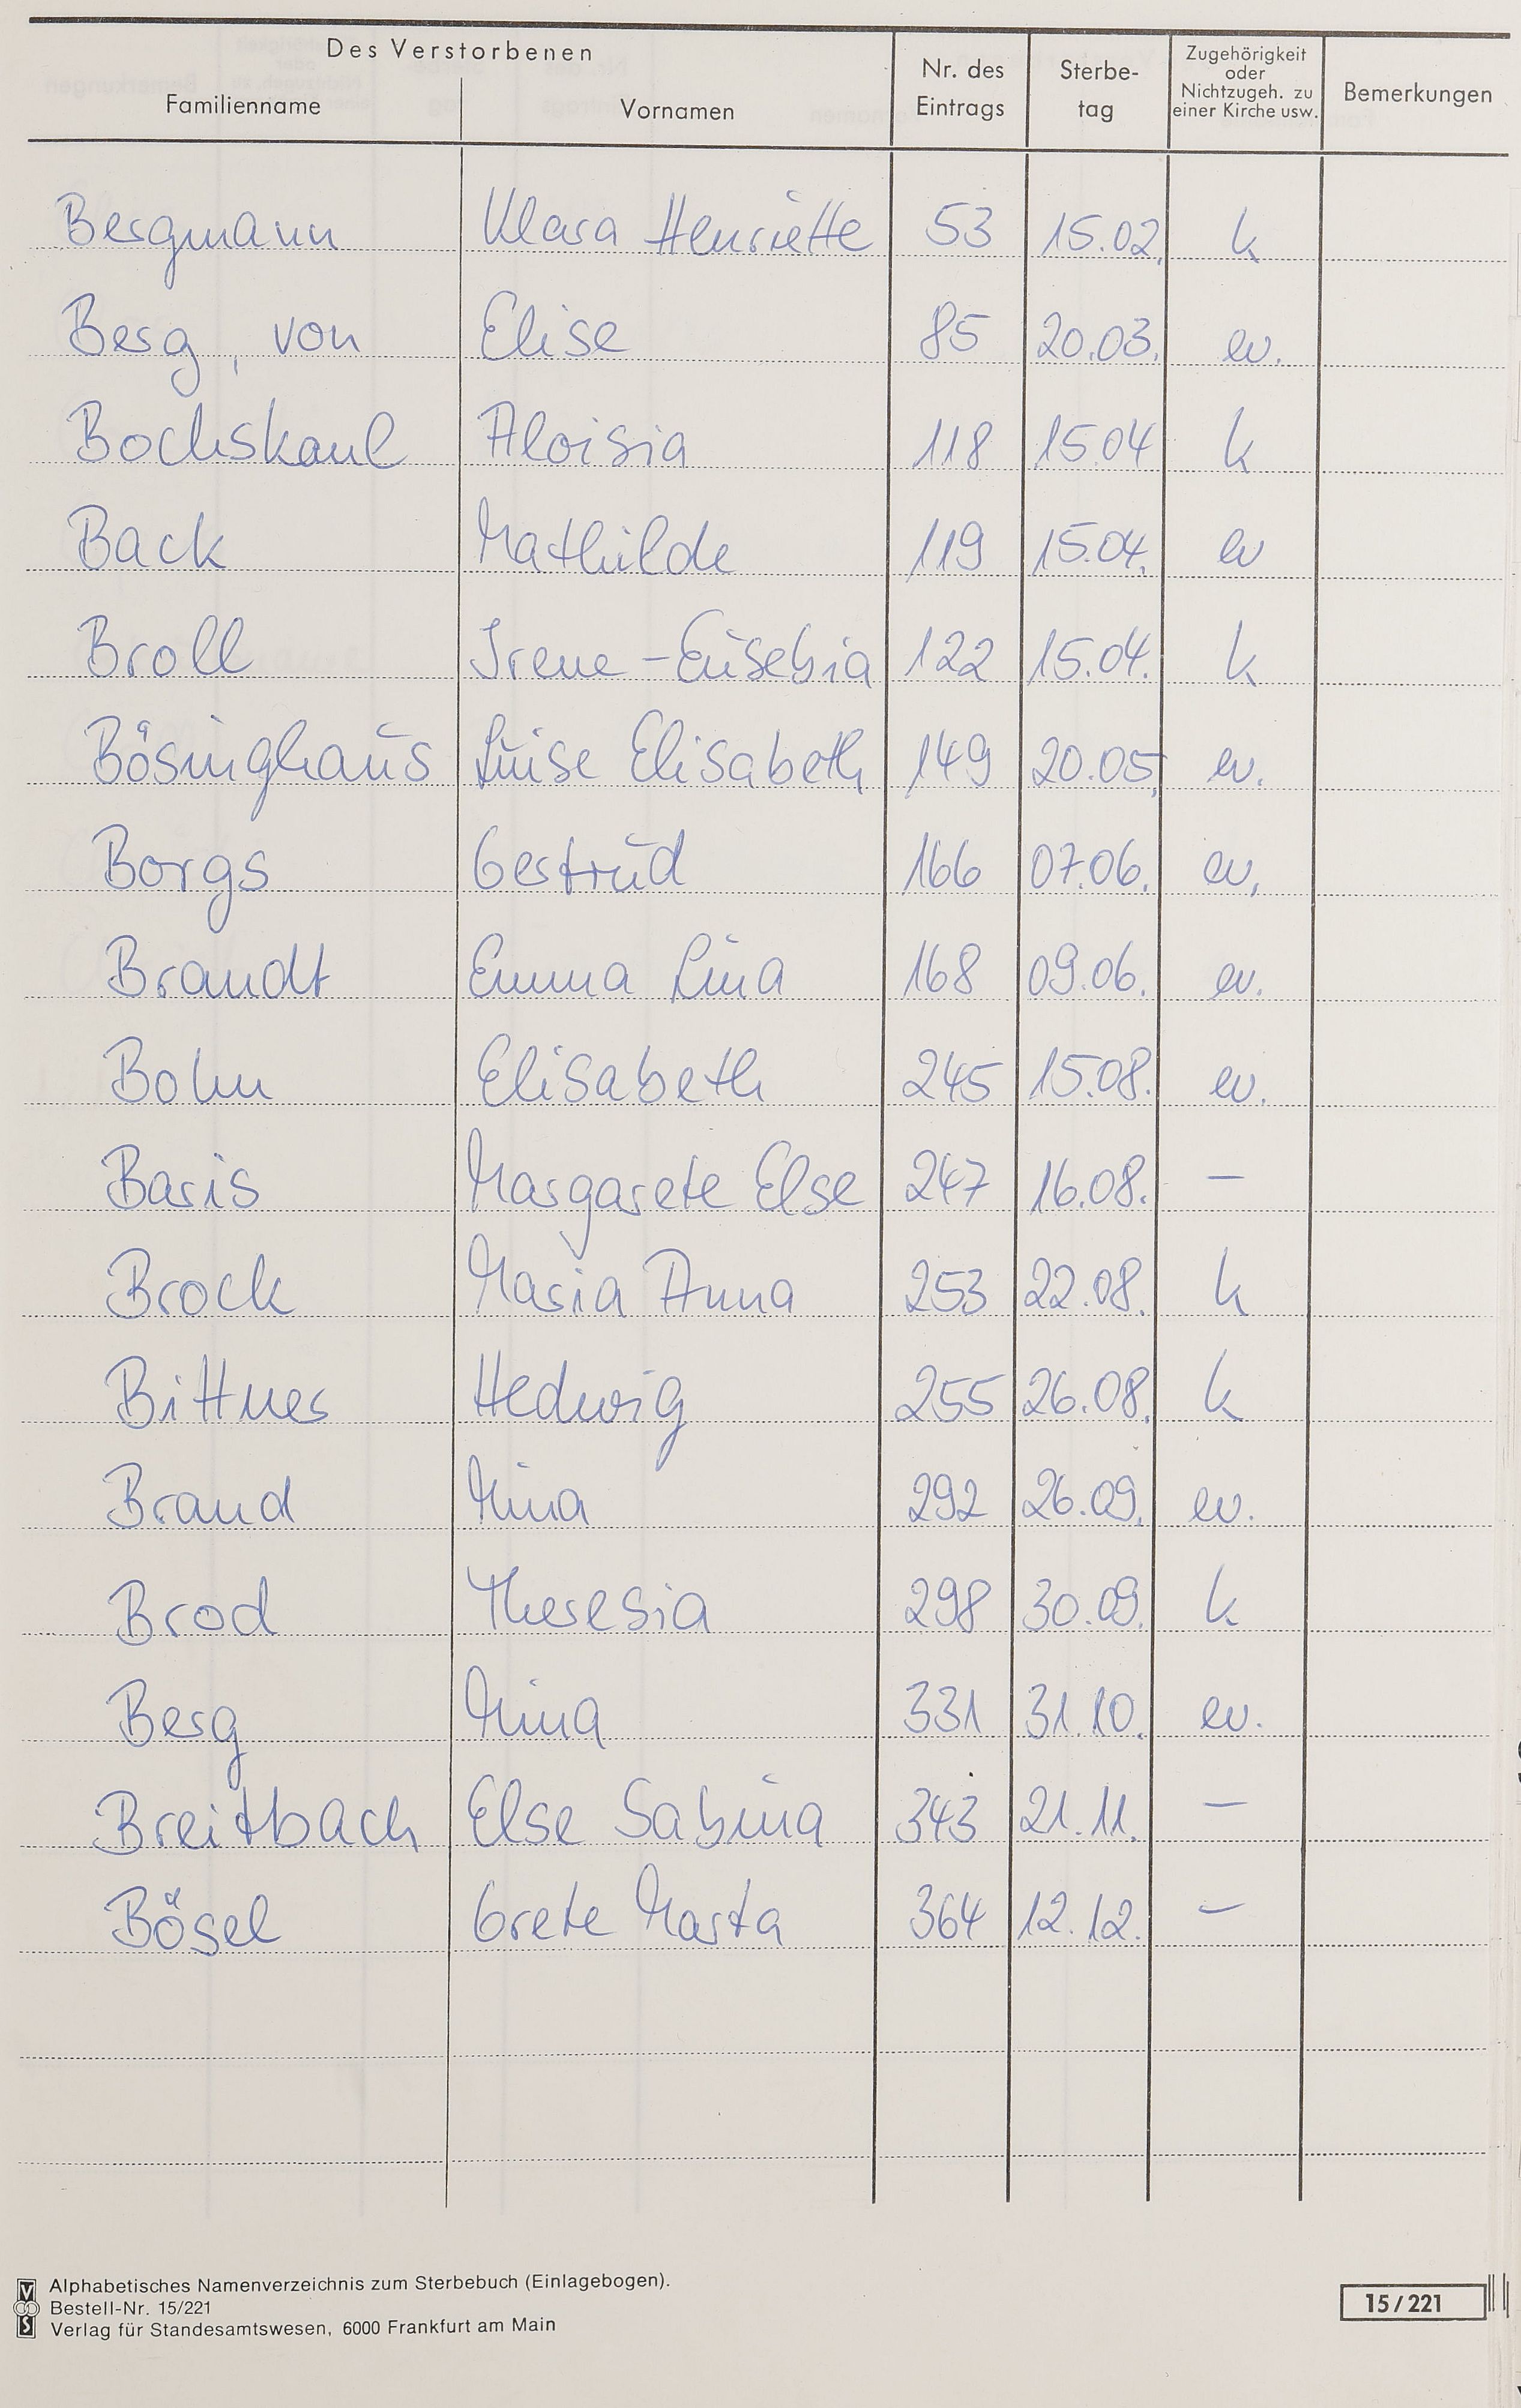 Des Verstorbenen
Familienname Vornamen Nr. des Eintrags Sterbe-tag Zugehörigkeit oder Nichtzugeh. zu einer Kirche usw. Bemerkungen
Bergmann Klara Henriette 53 15.02. k
Berg, von Elise 85 20.03. ev.
Bochskanl Aloisia 118 15.04 k
Back Mathilde 119 15.04. ev
Broll Irene-Eusebia 122 15.04. k
Bösinghaus Luise Elisabeth 149 20.05. ev.
Borgs Gertrud 166 07.06. ev.
Brandt Emma Lina 168 09.06. ev.
Bohn Elisabeth 245 15.08. ev.
Baris Margarete Else 247 16.08. —
Brock Maria Anna 253 22.08. k
Bittner Hedwig 255 26.08. k
Brand Mina 292 26.09. ev.
Brod Theresia 298 30.09. k
Berg Mina 331 31.10. ev.
Breitbach Else Sabina 343 21.11. —
Bösel Grete Marta 364 12.12. —
Alphabetisches Namenverzeichnis zum Sterbebuch (Einlagebogen).
Bestell-Nr. 15/221
Verlag für Standesamtswesen, 6000 Frankfurt am Main
15/221